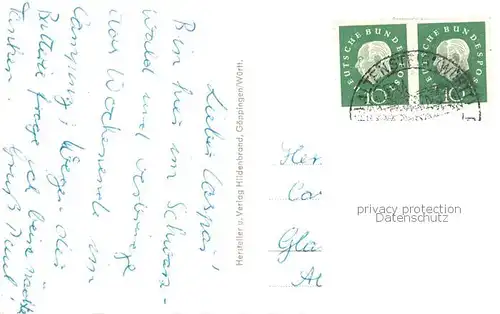 Lieber Caspar!
Bin hier im Schwarz-
wald und verbringe
das Wochenende im
Camping! Wegen der
Batterie frage ich beim nächsten
Tanken.
Gruß
Hersteller u. Verlag Hildenbrand, Göppingen/Württ.
DEUTSCHE BUNDESPOST
10
DEUTSCHE BUNDESPOST
10
Her
Ca
Gla
privacy protection
Datenschutz